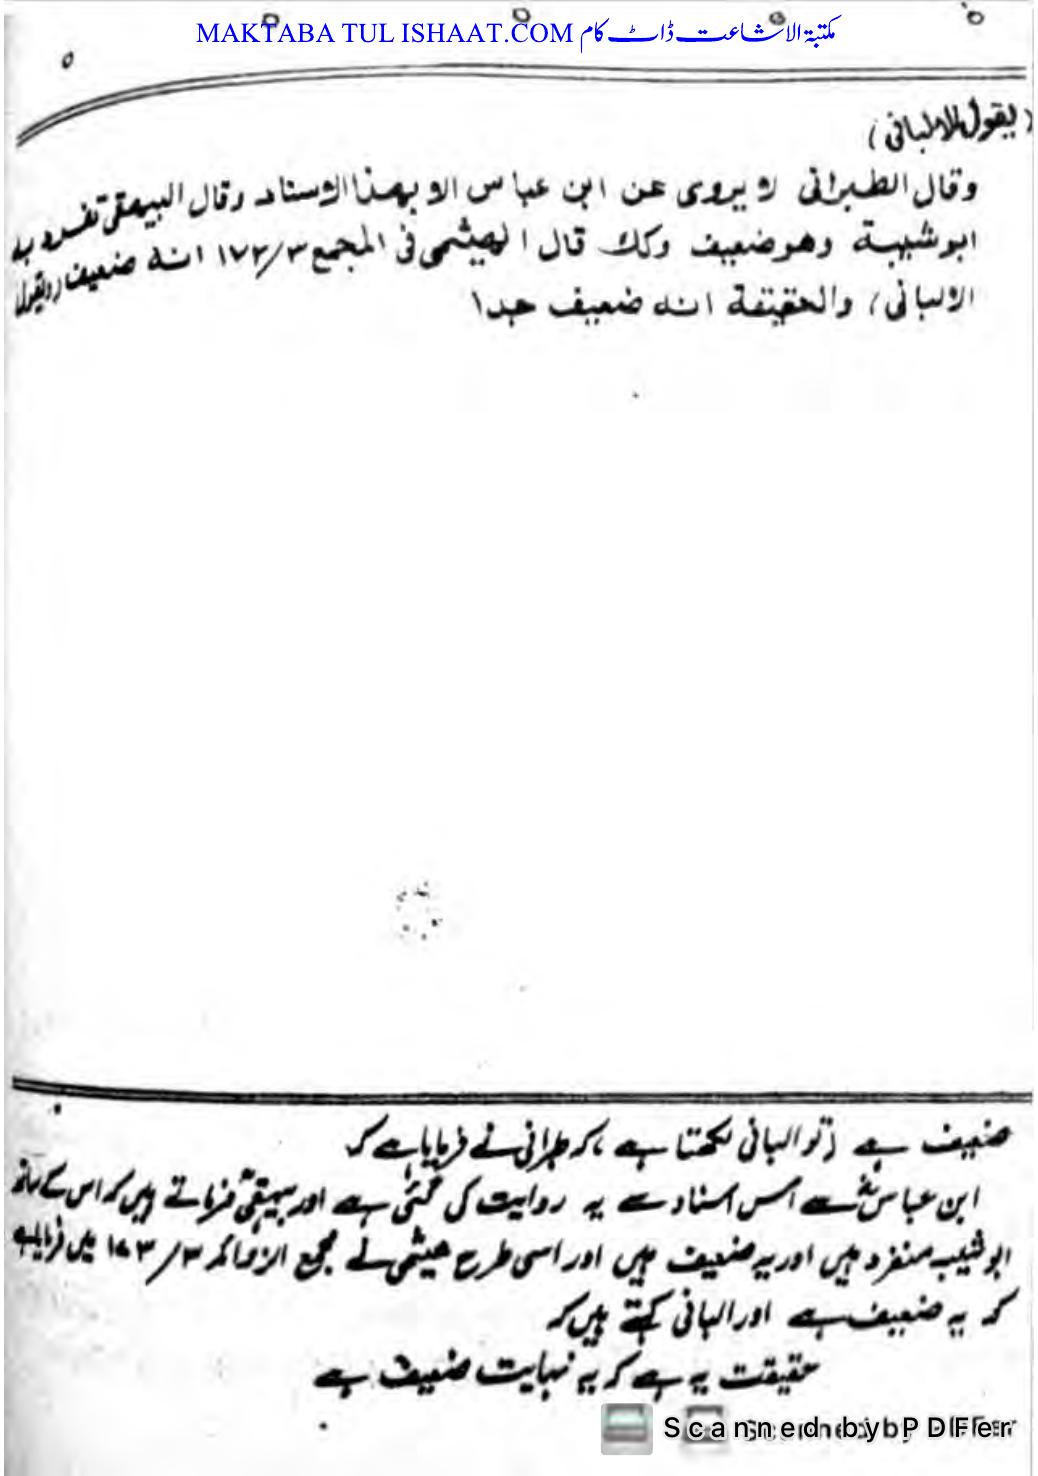 MAKTABA TUL ISHAAT.COM مکتبۃ الاشاعت ڈاٹ کام
(يقول الالبانى)
وقال الطبرانى لا يروى عن ابن عباس الا بهذا الاسناد وقال البيهقى تفرد به
ابوشيبة وهو ضعيف وكك قال الهيثمى فى المجمع ١٧٢/٣ انه ضعيف (ويقول
الالبانى) والحقيقة انه ضعيف جدا
ضعیف ہے (تو البانی لکھتا ہے ) کہ طبرانی نے فرمایا ہے کہ
ابن عباسؓ سے اس اسناد سے یہ روایت کی گئی ہے اور بیہقیؒ فرماتے ہیں کہ اس کے ساتھ
ابو شیبہ منفرد ہیں اور یہ ضعیف ہیں اور اسی طرح ھیثمی نے مجمع الزوائد ٣/١٧٣ میں فرمایا ہے
کہ یہ ضعیف ہے اور البانی کہتے ہیں کہ
حقیقت یہ ہے کہ یہ نہایت ضعیف ہے
Scanned by PDFer